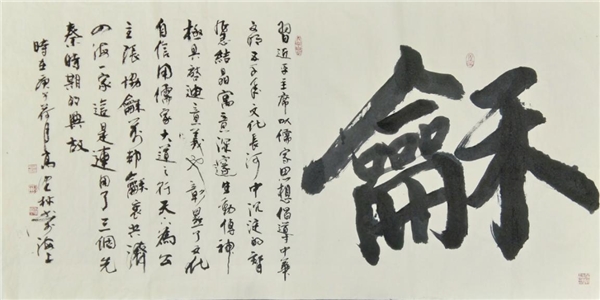 龢
習近平主席以儒家思想倡導中華
文明五千年文化長河中沉淀的智
慧結晶寓意深邃生動傳神
極具啓迪意義也彰顯了文化
自信用儒家大道之行天下爲公
主張協龢萬邦龢衷共濟
四海一家這是連用了三個先
秦時期的典故
時在庚子荷月高林書於海上